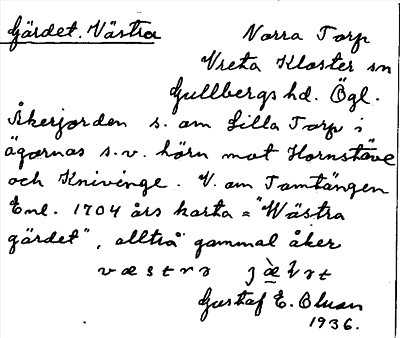 Gärdet. Västra
Norra Torp
Vreta Kloster sn
Gullbergs hd. Ögl.
Åkerjorden s. om Lilla Torp i
ägornas s.v. hörn mot Hornstäve
och Knivinge. V. om Tomtängen
Enl. 1704 års karta = "Wästra
gärdet", alltså gammal åker
væstrə jæ̀ḷət
Gustaf E. Olsson
1936.